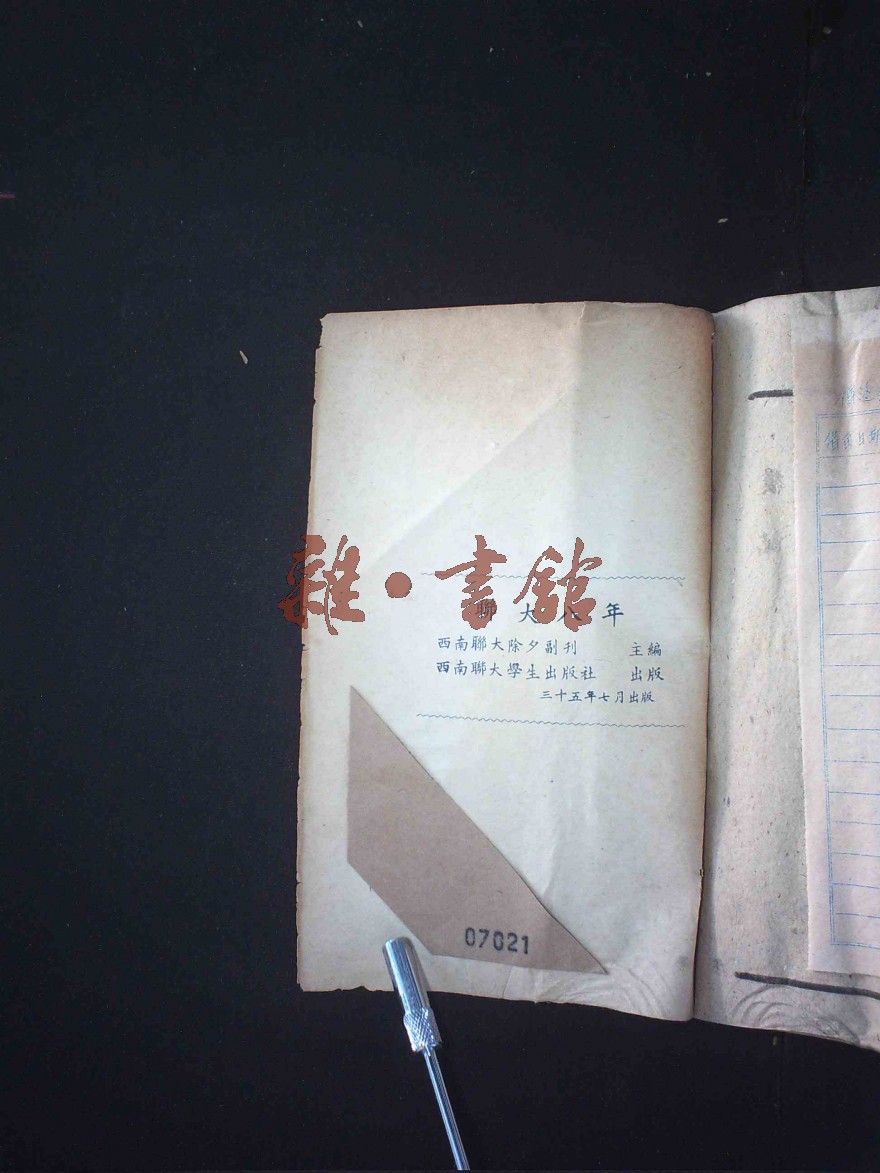 雜·書館
聯大八年
西南聯大除夕副刊 主編
西南聯大學生出版社 出版
三十五年七月出版
07021